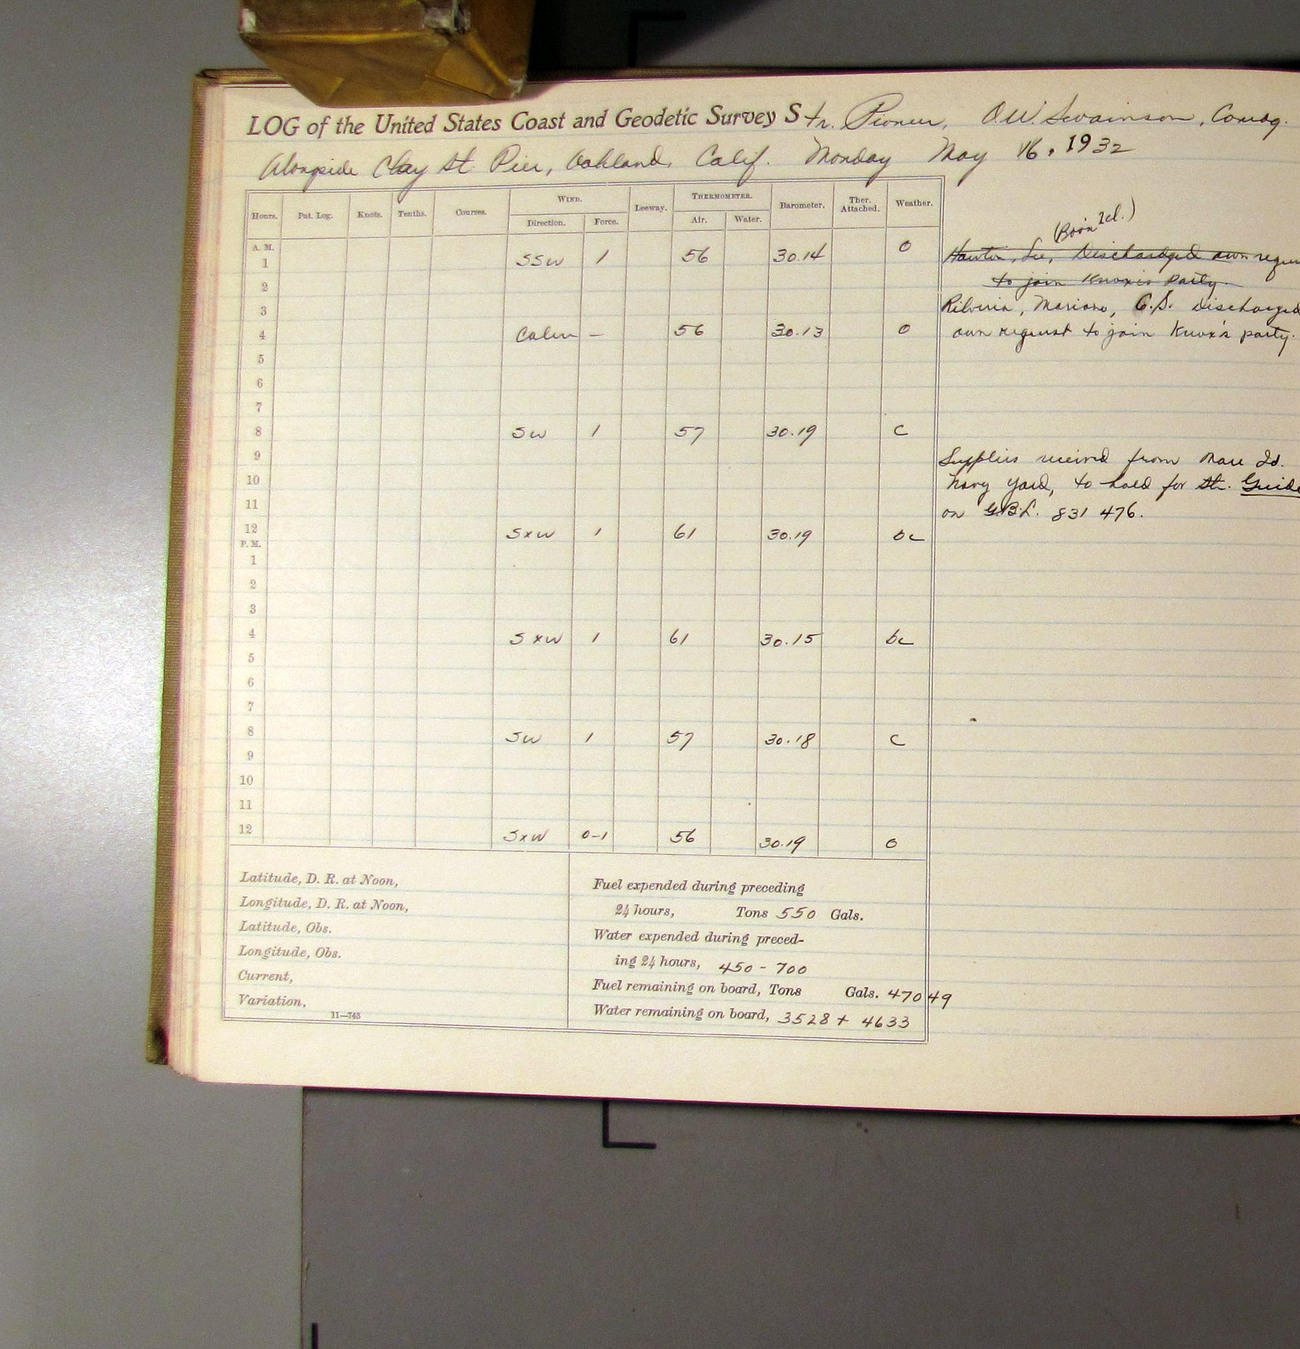 LOG of the United States Coast and Geodetic Survey Str. Pioneer, O.W. Swainson, Comdg.
Alongside Clay St. Pier, Oakland, Calif. Monday May 16, 1932
Hours. Pat. Log. Knots. Tenths. Courses. WIND. Direction. Force. Leeway. THERMOMETER. Air. Water. Barometer. Ther. Attached. Weather.
A. M.
1 SSW 1 56 30.14 O
2
3
4 Calm – 56 30.13 O
5
6
7
8 SW 1 57 30.19 C
9
10
11
12 SxW 1 61 30.19 bc
P. M.
1
2
3
4 SxW 1 61 30.15 bc
5
6
7
8 SW 1 57 30.18 C
9
10
11
12 SxW 0-1 56 30.19 O
Lee, Discharged own
to join Knox's party.
Mariano, C.S. Discharged
own request to join Knox's party.
Supplies received from Mare Id.
Navy Yard, to hold for Str. Guide
on G.B.L. 831 476.
Latitude, D. R. at Noon,
Longitude, D. R. at Noon,
Latitude, Obs.
Longitude, Obs.
Current,
Variation,
11—745
Fuel expended during preceding
24 hours, Tons 550 Gals.
Water expended during preced-
ing 24 hours, 450 - 700
Fuel remaining on board, Tons Gals. 47049
Water remaining on board, 3528 + 4633